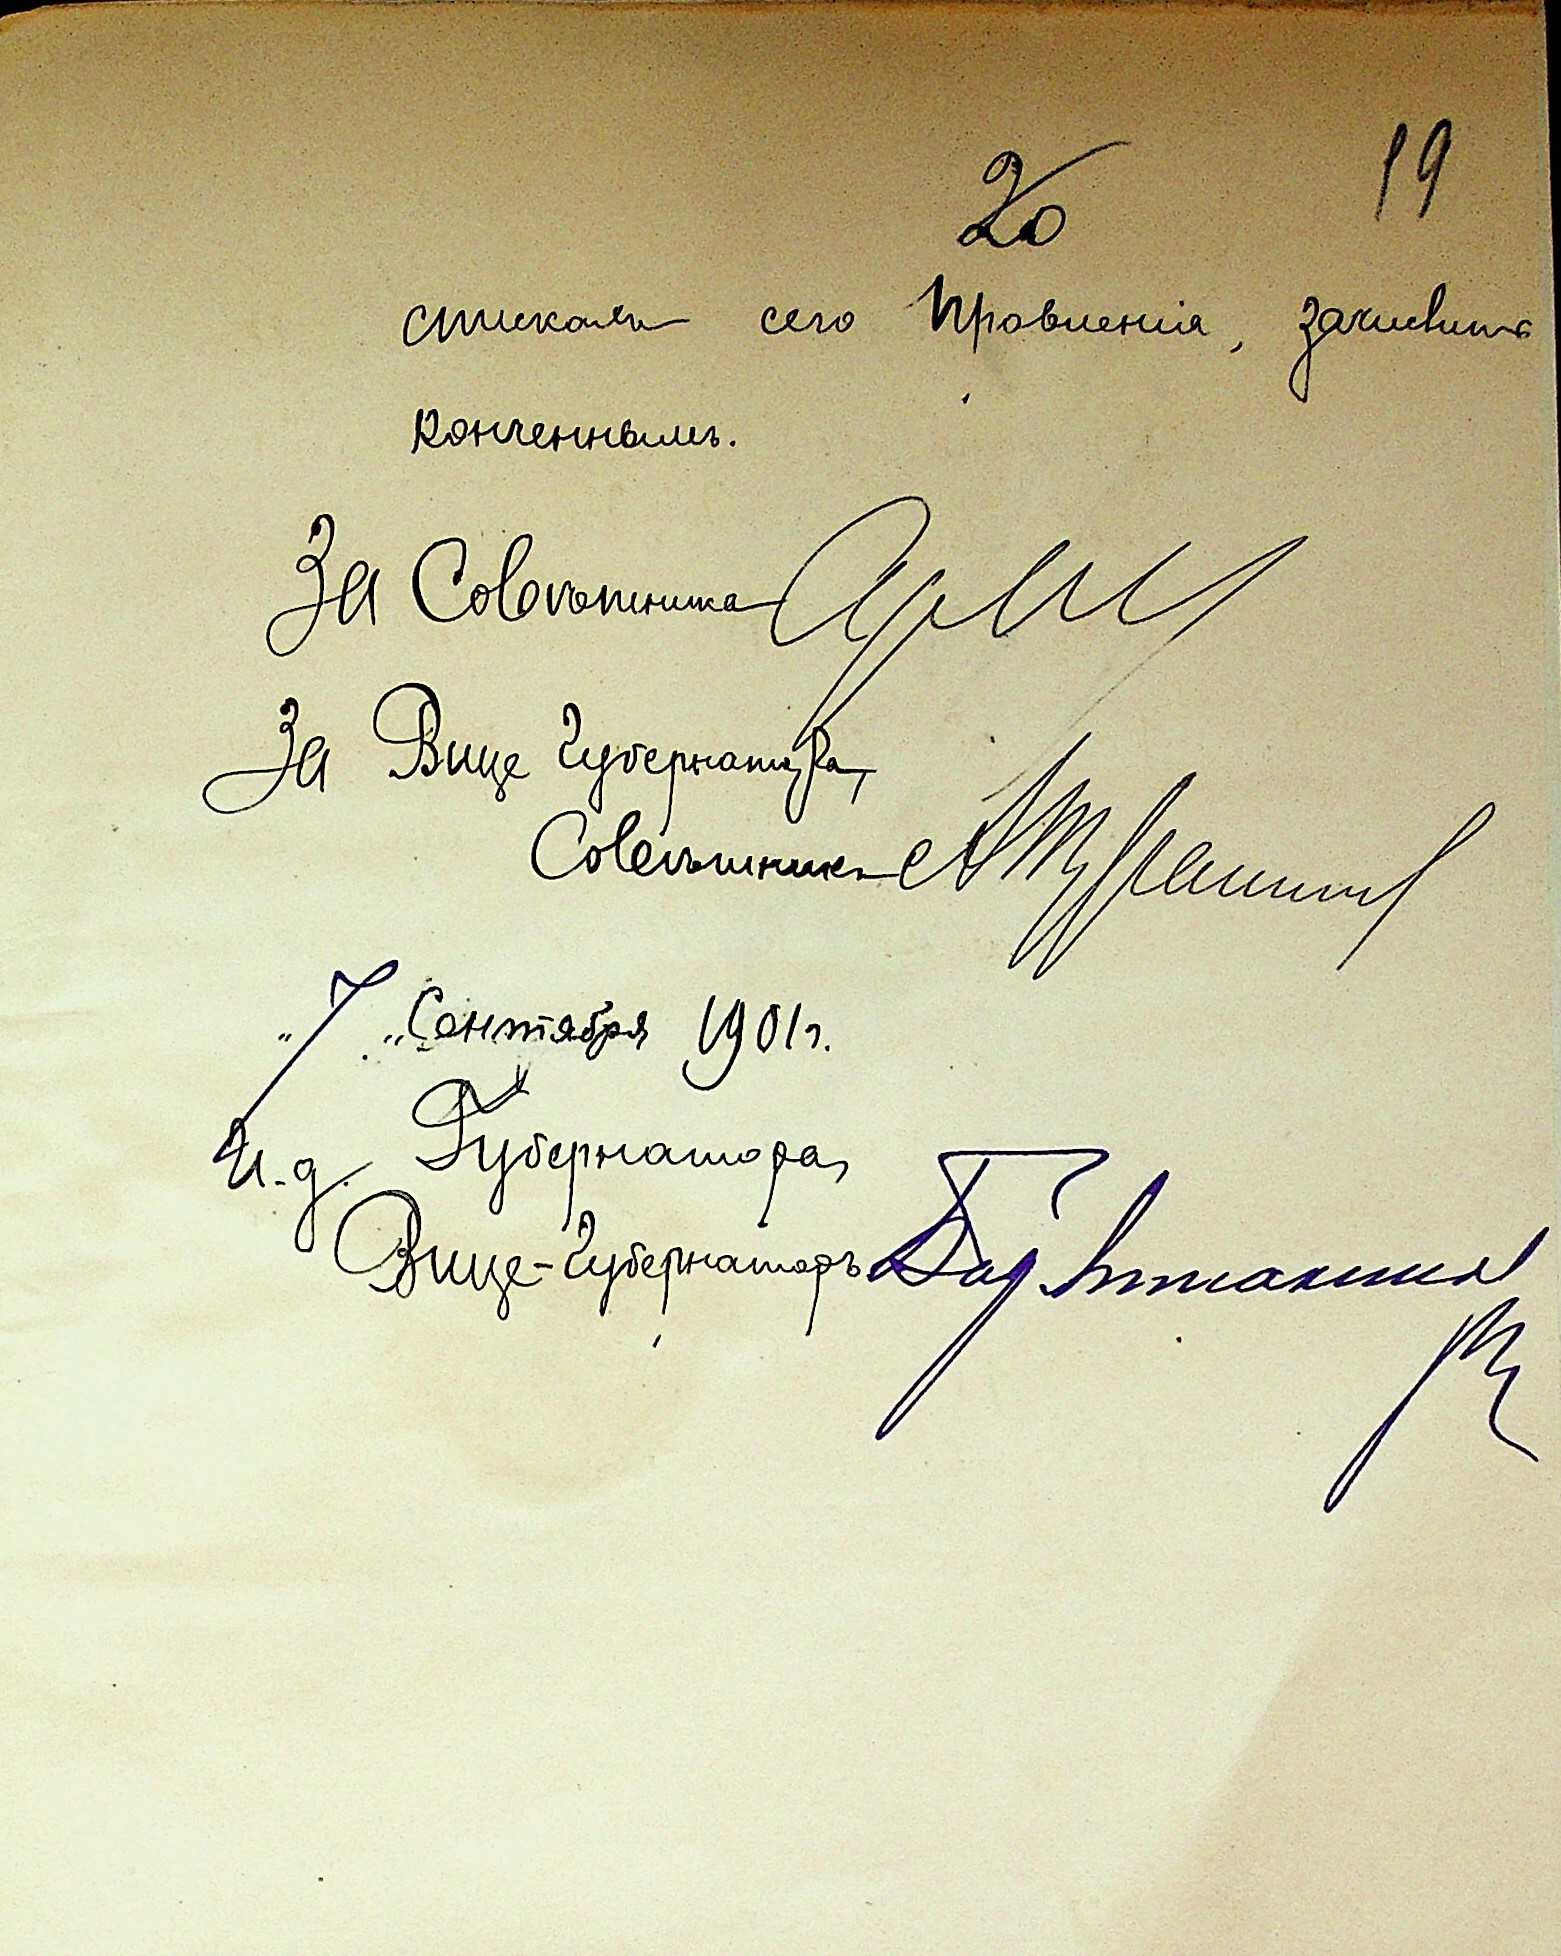 20 19
спискамъ сего Правленія, зачислить
конченнымъ.
За Совѣтника
За Вице Губернатора,
Совѣтникъ
"7" Сентября 1901 г.
И. д. Губернатора,
Вице-Губернаторъ